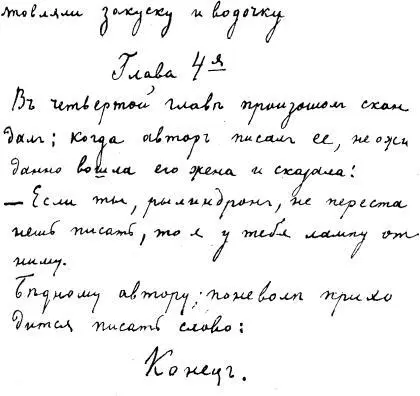 товляли закуску и водочку
Глава 4я
Въ четвертой главѣ произошолъ скан
далъ; когда авторъ писалъ ее, неожи
данно вошла его жена и сказала:
— Если ты, рылиндронъ, не переста
нешь писать, то я у тебя лампу от
ниму.
Бѣдному автору, поневолѣ прихо
дится писать слово:
Конецъ.